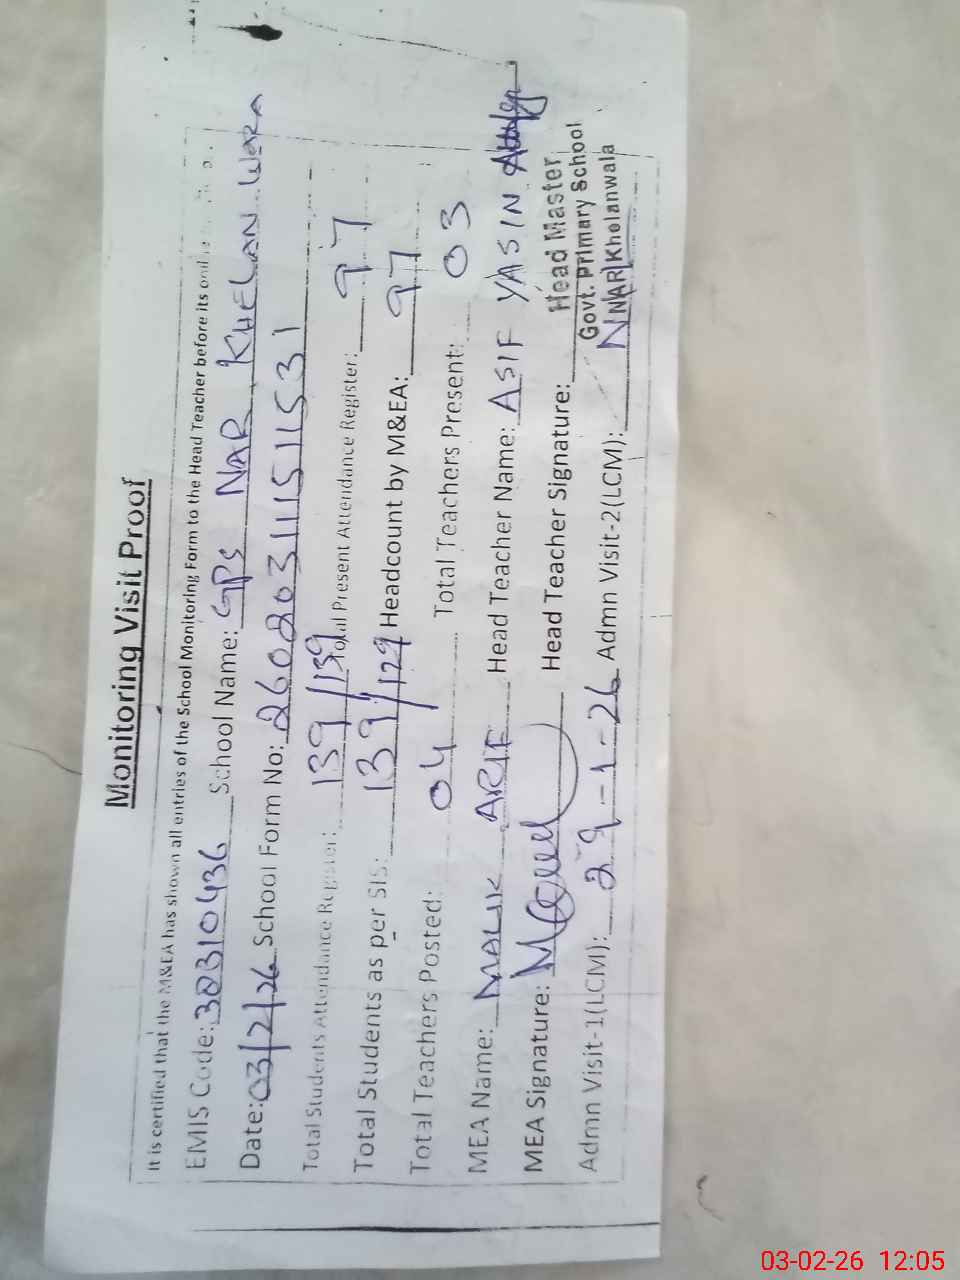 Monitoring Visit Proof
It is certified that the M&EA has shown all entries of the School Monitoring Form to the Head Teacher before its
EMIS Code: 38310436 School Name: GPS NAR KHELAN WARA
Date: 03/2/26 School Form No: 26020311151531
Total Students Attendance Register: 139/139 Total Present Attendance Register: 97
Total Students as per SIS: 139/129 Headcount by M&EA: 97
Total Teachers Posted: 04 Total Teachers Present: 03
MEA Name: MALIK ARIF Head Teacher Name: ASIF YASIN
MEA Signature: Head Teacher Signature:
Head Master
Govt. Primary School
NNAR Khelanwala
Admn Visit-1(LCM): 29-1-26 Admn Visit-2(LCM):
03-02-26 12:05